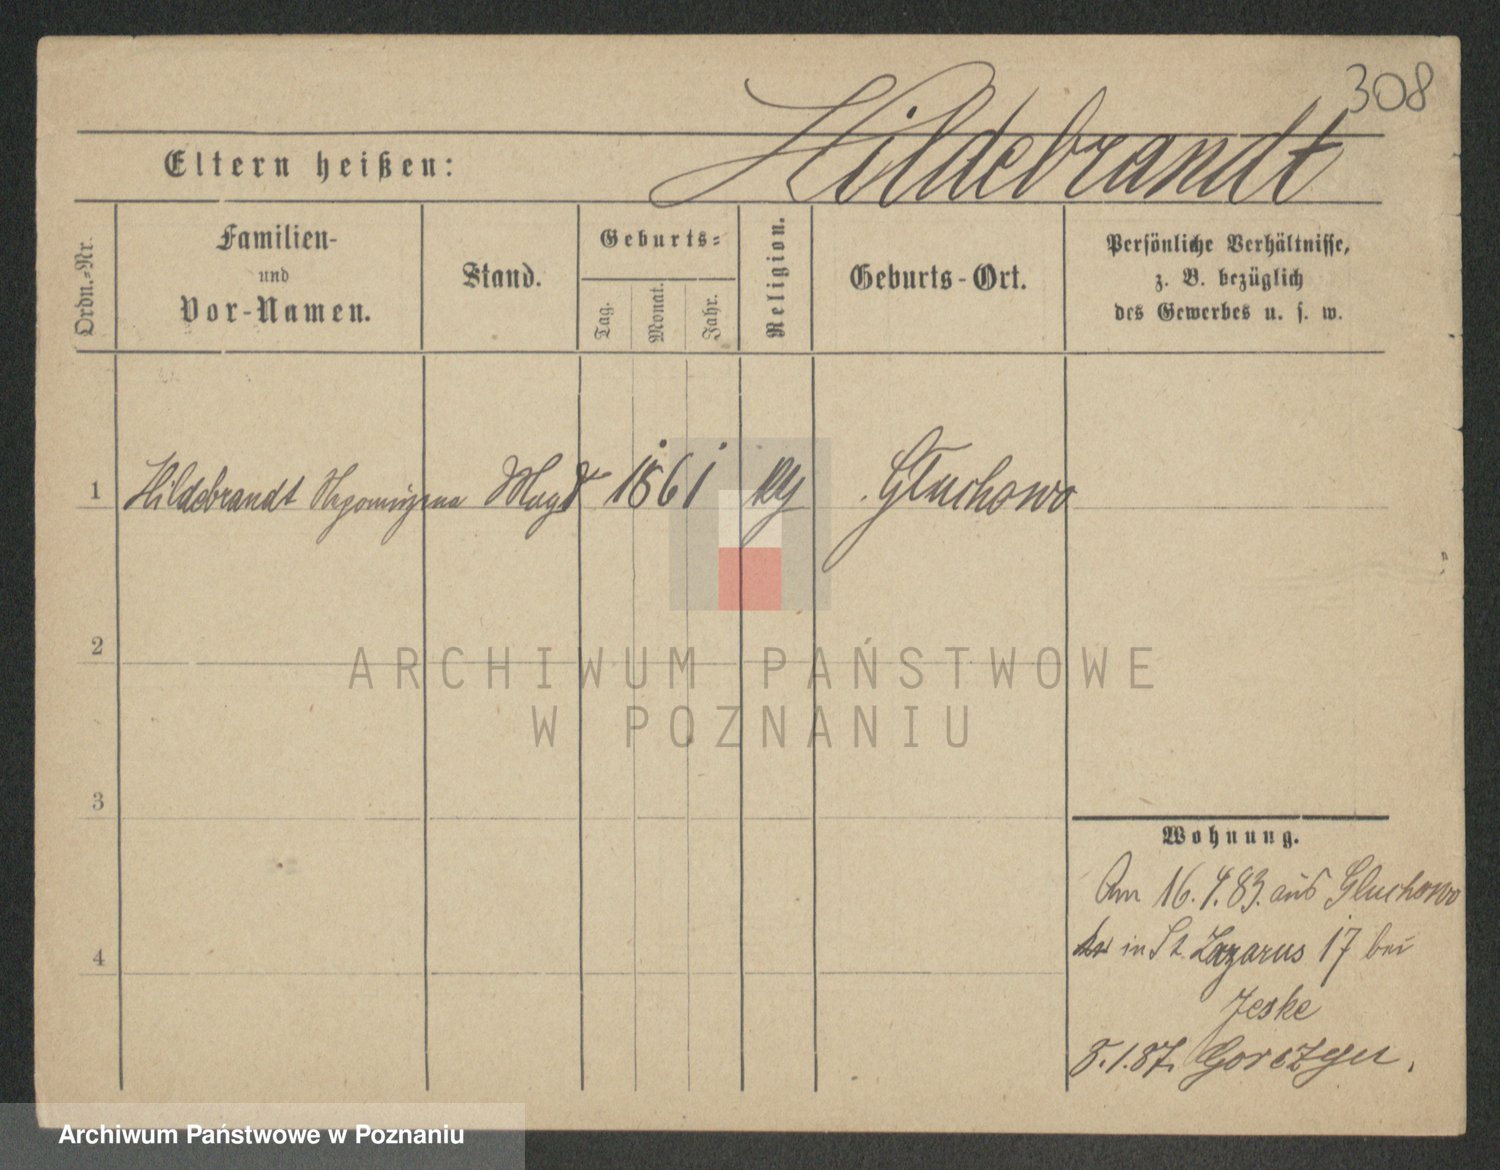 308
Hildebrandt
Eltern heißen:
Ordn.-Nr.
Familien-
und
Vor-Namen.
Stand.
Geburts-
Tag.
Monat.
Jahr.
Religion.
Geburts-Ort.
Persönliche Verhältnisse,
z. B. bezüglich
des Gewerbes u. s. w.
1 Hildebrandt Magd 1861 Gluchowo
2
3
4
Wohnung.
Am 16.4.83. aus Gluchowo
in St. Lazarus 17 bei
Jeske
8.1.87. Gorczyn.
ARCHIWUM PAŃSTWOWE
W POZNANIU
Archiwum Państwowe w Poznaniu